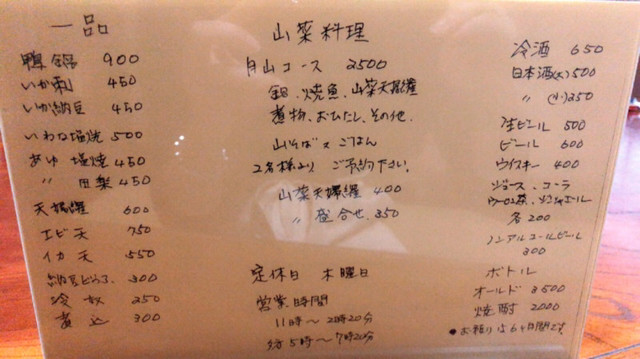 一品
鴨鍋 900
いか刺 450
いか納豆 450
いわな塩焼 500
あゆ塩焼 450
〃 田楽 450
天ぷら羅 600
エビ天 750
イカ天 550
冷奴 250
煮込 300
山菜料理
月山コース 2500
鍋、焼魚、山菜天ぷら羅
煮物、おひたし、その他、
山そば又ごはん
2名様より ご予約下さい。
山菜天ぷら羅 400
〃 盛合せ 350
定休日 木曜日
営業時間
11時〜2時20分
5時〜7時20分
冷酒 650
日本酒(大) 500
〃 (小) 250
生ビール 500
ビール 600
ウイスキー 400
ジュース、コーラ
ウーロン茶、
各200
ノンアルコールビール
300
ボトル
オールド 3500
焼酎 2000